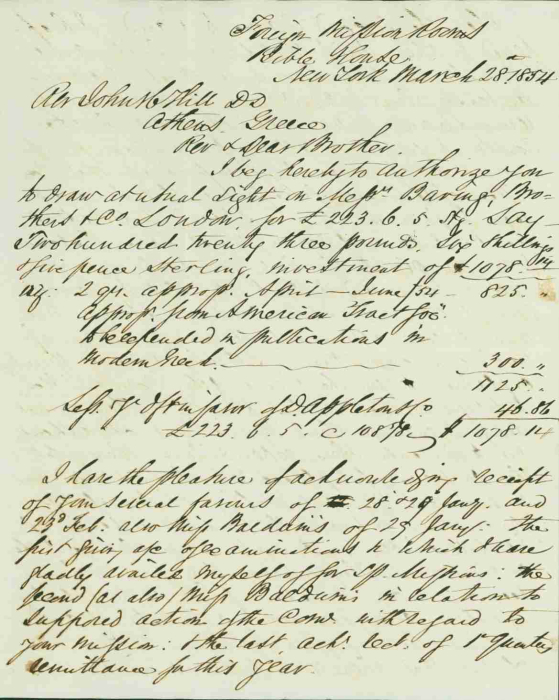 Foreign Mission Rooms
Bible House
New York March 28th 1854
Rev John H Hill DD
Athens Greece
Rev & Dear Brother.
I beg hereby to authorize you
to draw at usual sight on Messrs Baring, Bro-
thers & Co. London for £223. 6. 5. Stg Say
Two hundred twenty three pounds, six shillings
& five pence Sterling, investment of $1078 14
viz: 2 qr. approp. April - June /54 - 825. "
approp. from American Tract Soc
to be expended in publications in
Modern Greek. 300. "
1125 "
Less yr dft in favor of D Appleton & Co 46.86
£223. 6. 5. @ 108 7/8 $1078.14
I have the pleasure of acknowledging receipt
of your several favours of 28. & 29 Jany. and
23d Feb. also Miss Baldwin's of 29 Jany: the
first giving a/c of examinations &c which I have
gladly availed myself of for Sp. Missions: the
second (as also) Miss Baldwin's in relation to
supposed action of the Come with regard to
your mission: & the last, ackg. rect. of 1st Quarters
remittance for this year.